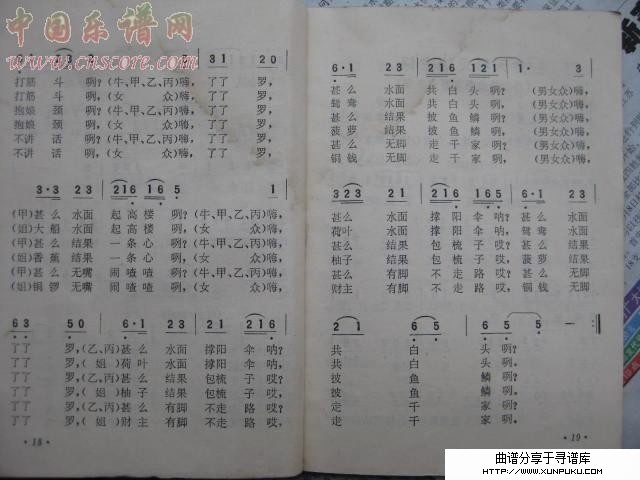 中国乐谱网
www.cnscore.com
3 1 2 0
打筋 斗 咧?(牛、甲、乙、丙)嗨, 了了 罗,
打筋 斗 咧?(女 众)嗨, 了了 罗,
抱娘 颈 咧?(牛、甲、乙、丙)嗨, 了了 罗,
抱娘 颈 咧?(女 众)嗨, 了了 罗,
不讲 话 咧?(牛、甲、乙、丙)嗨, 了了 罗,
不讲 话 咧,(女 众)嗨, 了了 罗,
3·3 2 3 2 1 6 1 6 5 1
(甲)甚 么 水面 起高楼 咧?(牛、甲、乙、丙)嗨,
(姐)大 船 水面 起高楼 咧,(女 众)嗨,
(甲)甚 么 结果 一条心 咧?(牛、甲、乙、丙)嗨,
(姐)香 蕉 结果 一条心 咧,(女 众)嗨,
(甲)甚 么 无嘴 闹喳喳 咧?(牛、甲、乙、丙)嗨,
(姐)铜 锣 无嘴 闹喳喳 咧,(女 众)嗨,
6 3 5 0 6·1 2 3 2 1 2 1 6
了了 罗,(乙、丙)甚 么 水面 撑阳 伞 呐?
了了 罗,(姐)荷 叶 水面 撑阳 伞 呐?
了了 罗,(乙、丙)甚 么 结果 包梳 子 哎?
了了 罗,(姐)柚 子 结果 包梳 子 哎,
了了 罗,(乙、丙)甚 么 有脚 不走 路 哎?
了了 罗,(姐)财 主 有脚 不走 路 哎,
·18·
6·1 2 3 2 1 6 1 2 1 1· 3
甚 么 水面 共白头 咧?(男女众)嗨,
鸳 鸯 水面 共白头 咧,(男女众)嗨,
甚 么 结果 披鱼鳞 咧?(男女众)嗨,
菠 萝 结果 披鱼鳞 咧,(男女众)嗨,
甚 么 无脚 走千家 咧?(男女众)嗨,
铜 钱 无脚 走千家 咧,(男女众)嗨,
3 2 3 2 1 2 1 6 1 6 5 6·1 2 3
甚 么 水面 撑阳 伞 呐? 甚 么 水面
荷 叶 水面 撑阳 伞 呐, 鸳 鸯 水面
甚 么 结果 包梳 子 哎? 甚 么 结果
柚 子 结果 包梳 子 哎, 菠 萝 结果
甚 么 有脚 不走 路 哎? 甚 么 无脚
财 主 有脚 不走 路 哎, 铜 钱 无脚
2 1 6 5 6 5 5 —
共 白 头 咧?
共 白 头 咧。
披 鱼 鳞 咧?
披 鱼 鳞 咧。
走 千 家 咧?
走 千 家 咧。
·19·
曲谱分享于寻谱库
HTTP://WWW.XUNPUKU.COM